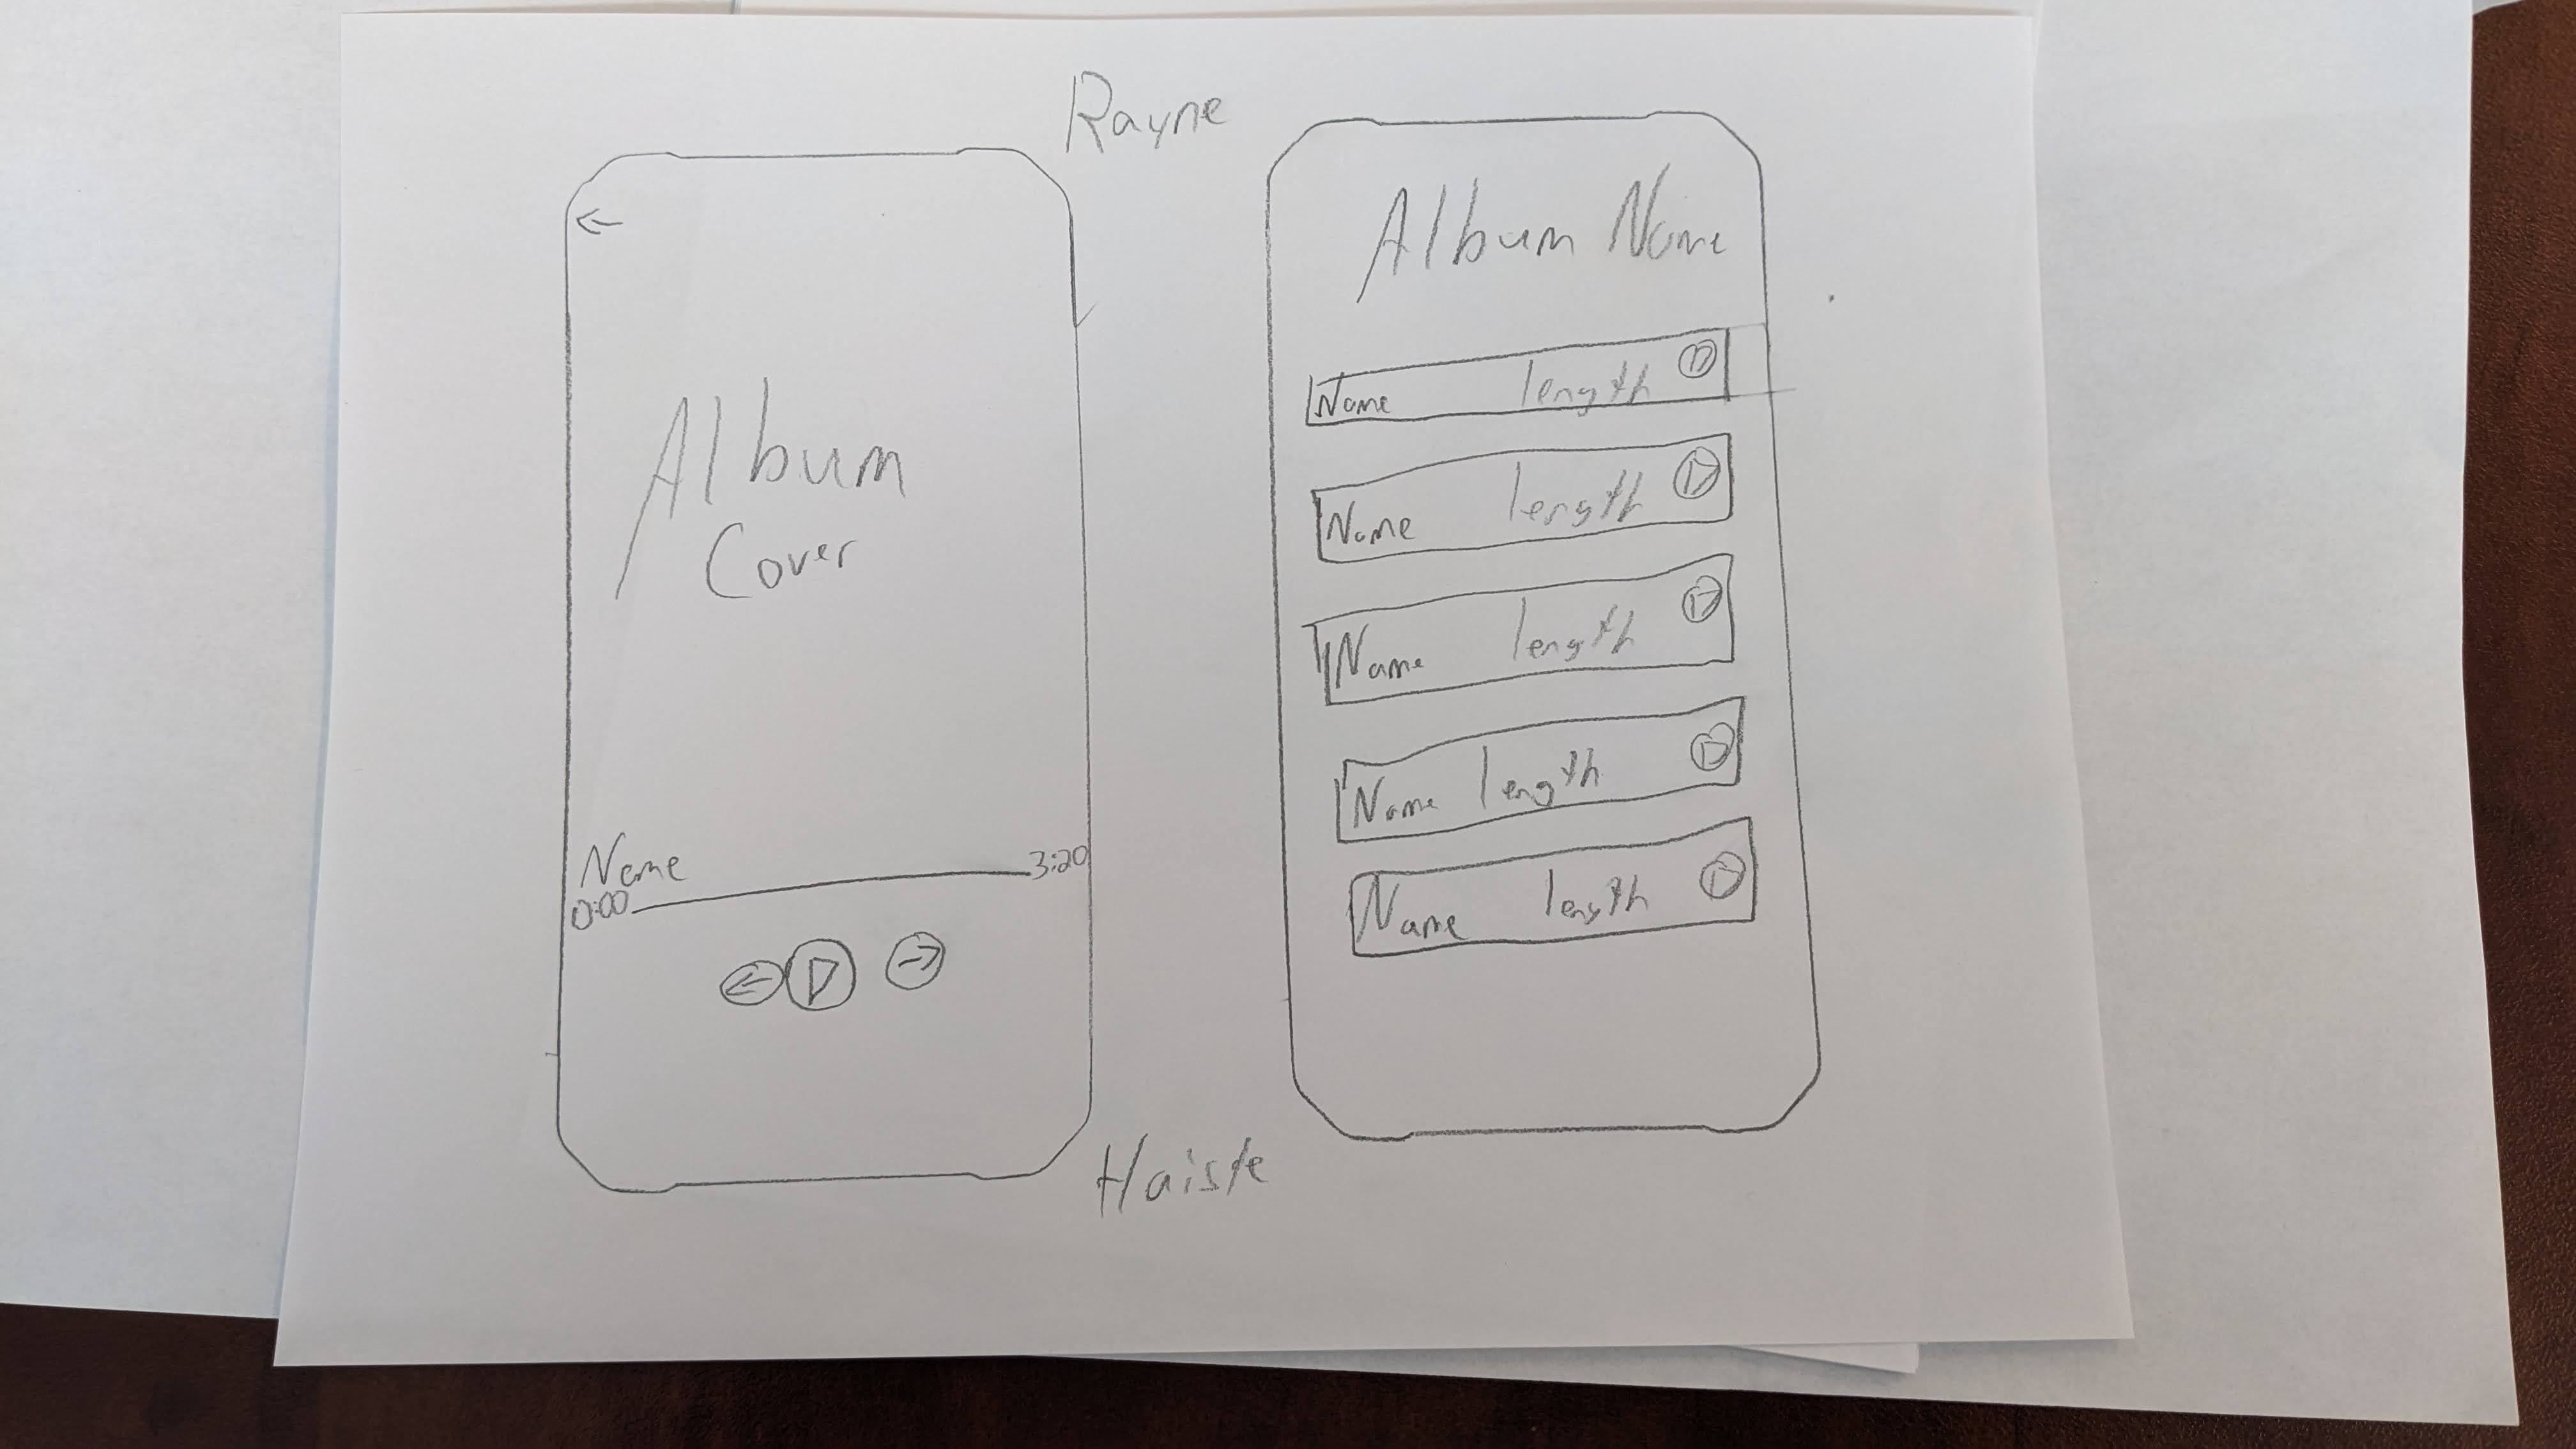 Rayne
Album
Cover
Name
0:00 3:20
Album Name
Name length
Name length
Name length
Name length
Name length
Haiste